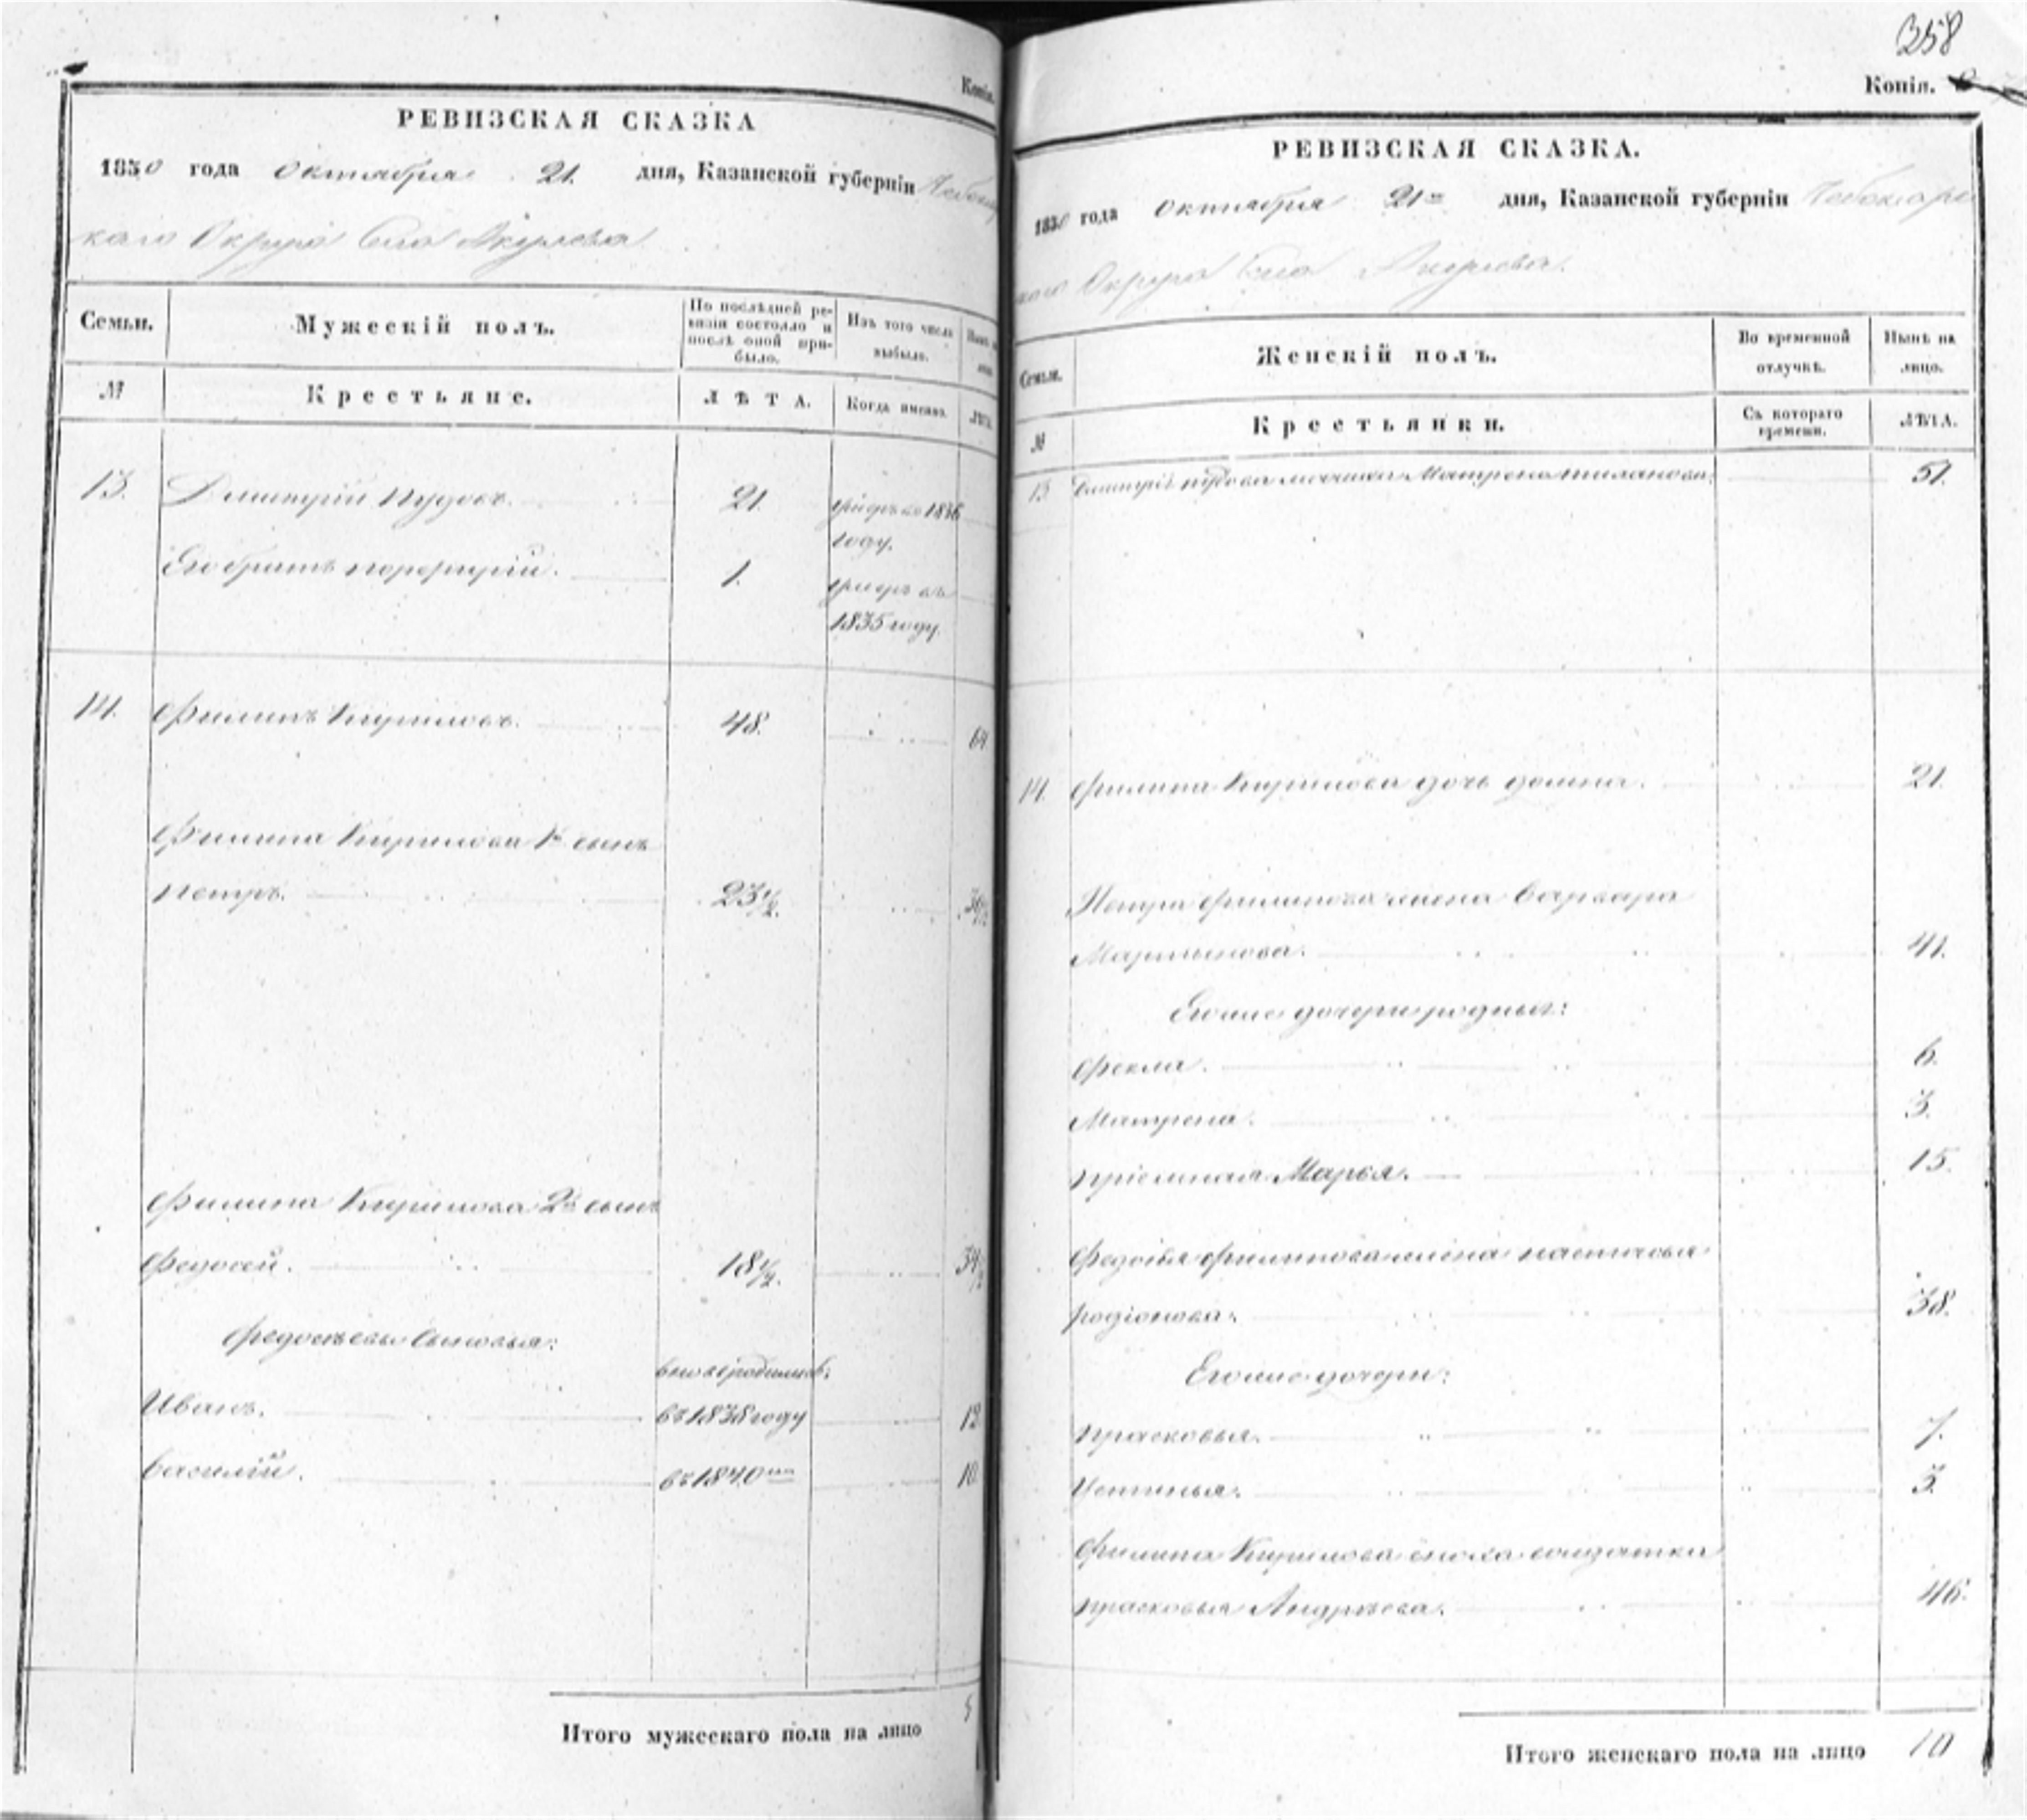 Копія.
РЕВИЗСКАЯ СКАЗКА
1850 года Октября 21. дня, Казанской губерніи Чебокса
каго Округа Села Акулева
Семьи.
Мужескій полъ.
По послѣдней ре-
визіи состояло и
послѣ оной при-
было.
Изъ того числа
выбыло.
№
Крестьяне.
ЛѢТА.
Когда именно.
лѣта.
13. Дмитрій Пудовъ. 21. умеръ въ 1836
году.
Его братъ Порфирій. 1. умеръ въ
1835 году.
14. Филипъ Кириловъ. 48. 64
Филипа Кирилова 1й сынъ
Петръ. 23½. 39½
Филипа Кирилова 2й сынъ
Федосей. 18½. 34½
Федосѣевы сыновья:
внове родились:
Иванъ. въ 1838 году 12
Василій. въ 1840мъ 10
Итого мужескаго пола на лицо 5
358
Копія.
РЕВИЗСКАЯ СКАЗКА.
1850 года Октября 21го дня, Казанской губерніи Чебоксарс
каго Округа Села Акулева.
Семьи.
Женскій полъ.
Во временной
отлучкѣ.
Нынѣ на
лицо.
№
Крестьянки.
Съ котораго
времени.
ЛѢТА.
13 Дмитрія Пудова мачиха Матрена 51.
14. Филипа Кирилова дочь Домна. 21.
Петра Филипова жена Варвара
Мартынова. 41.
Его же дочери родныя:
Фекла. 6.
Матрена. 3.
Пріемная Марья. 15.
Федосѣя Филипова жена Настасья
Родіонова. 38.
Его же дочери:
Прасковья. 7.
Устинья. 3.
Филипа Кирилова сноха солдатка
Прасковья Андрѣева. 46.
Итого женскаго пола на лицо 10